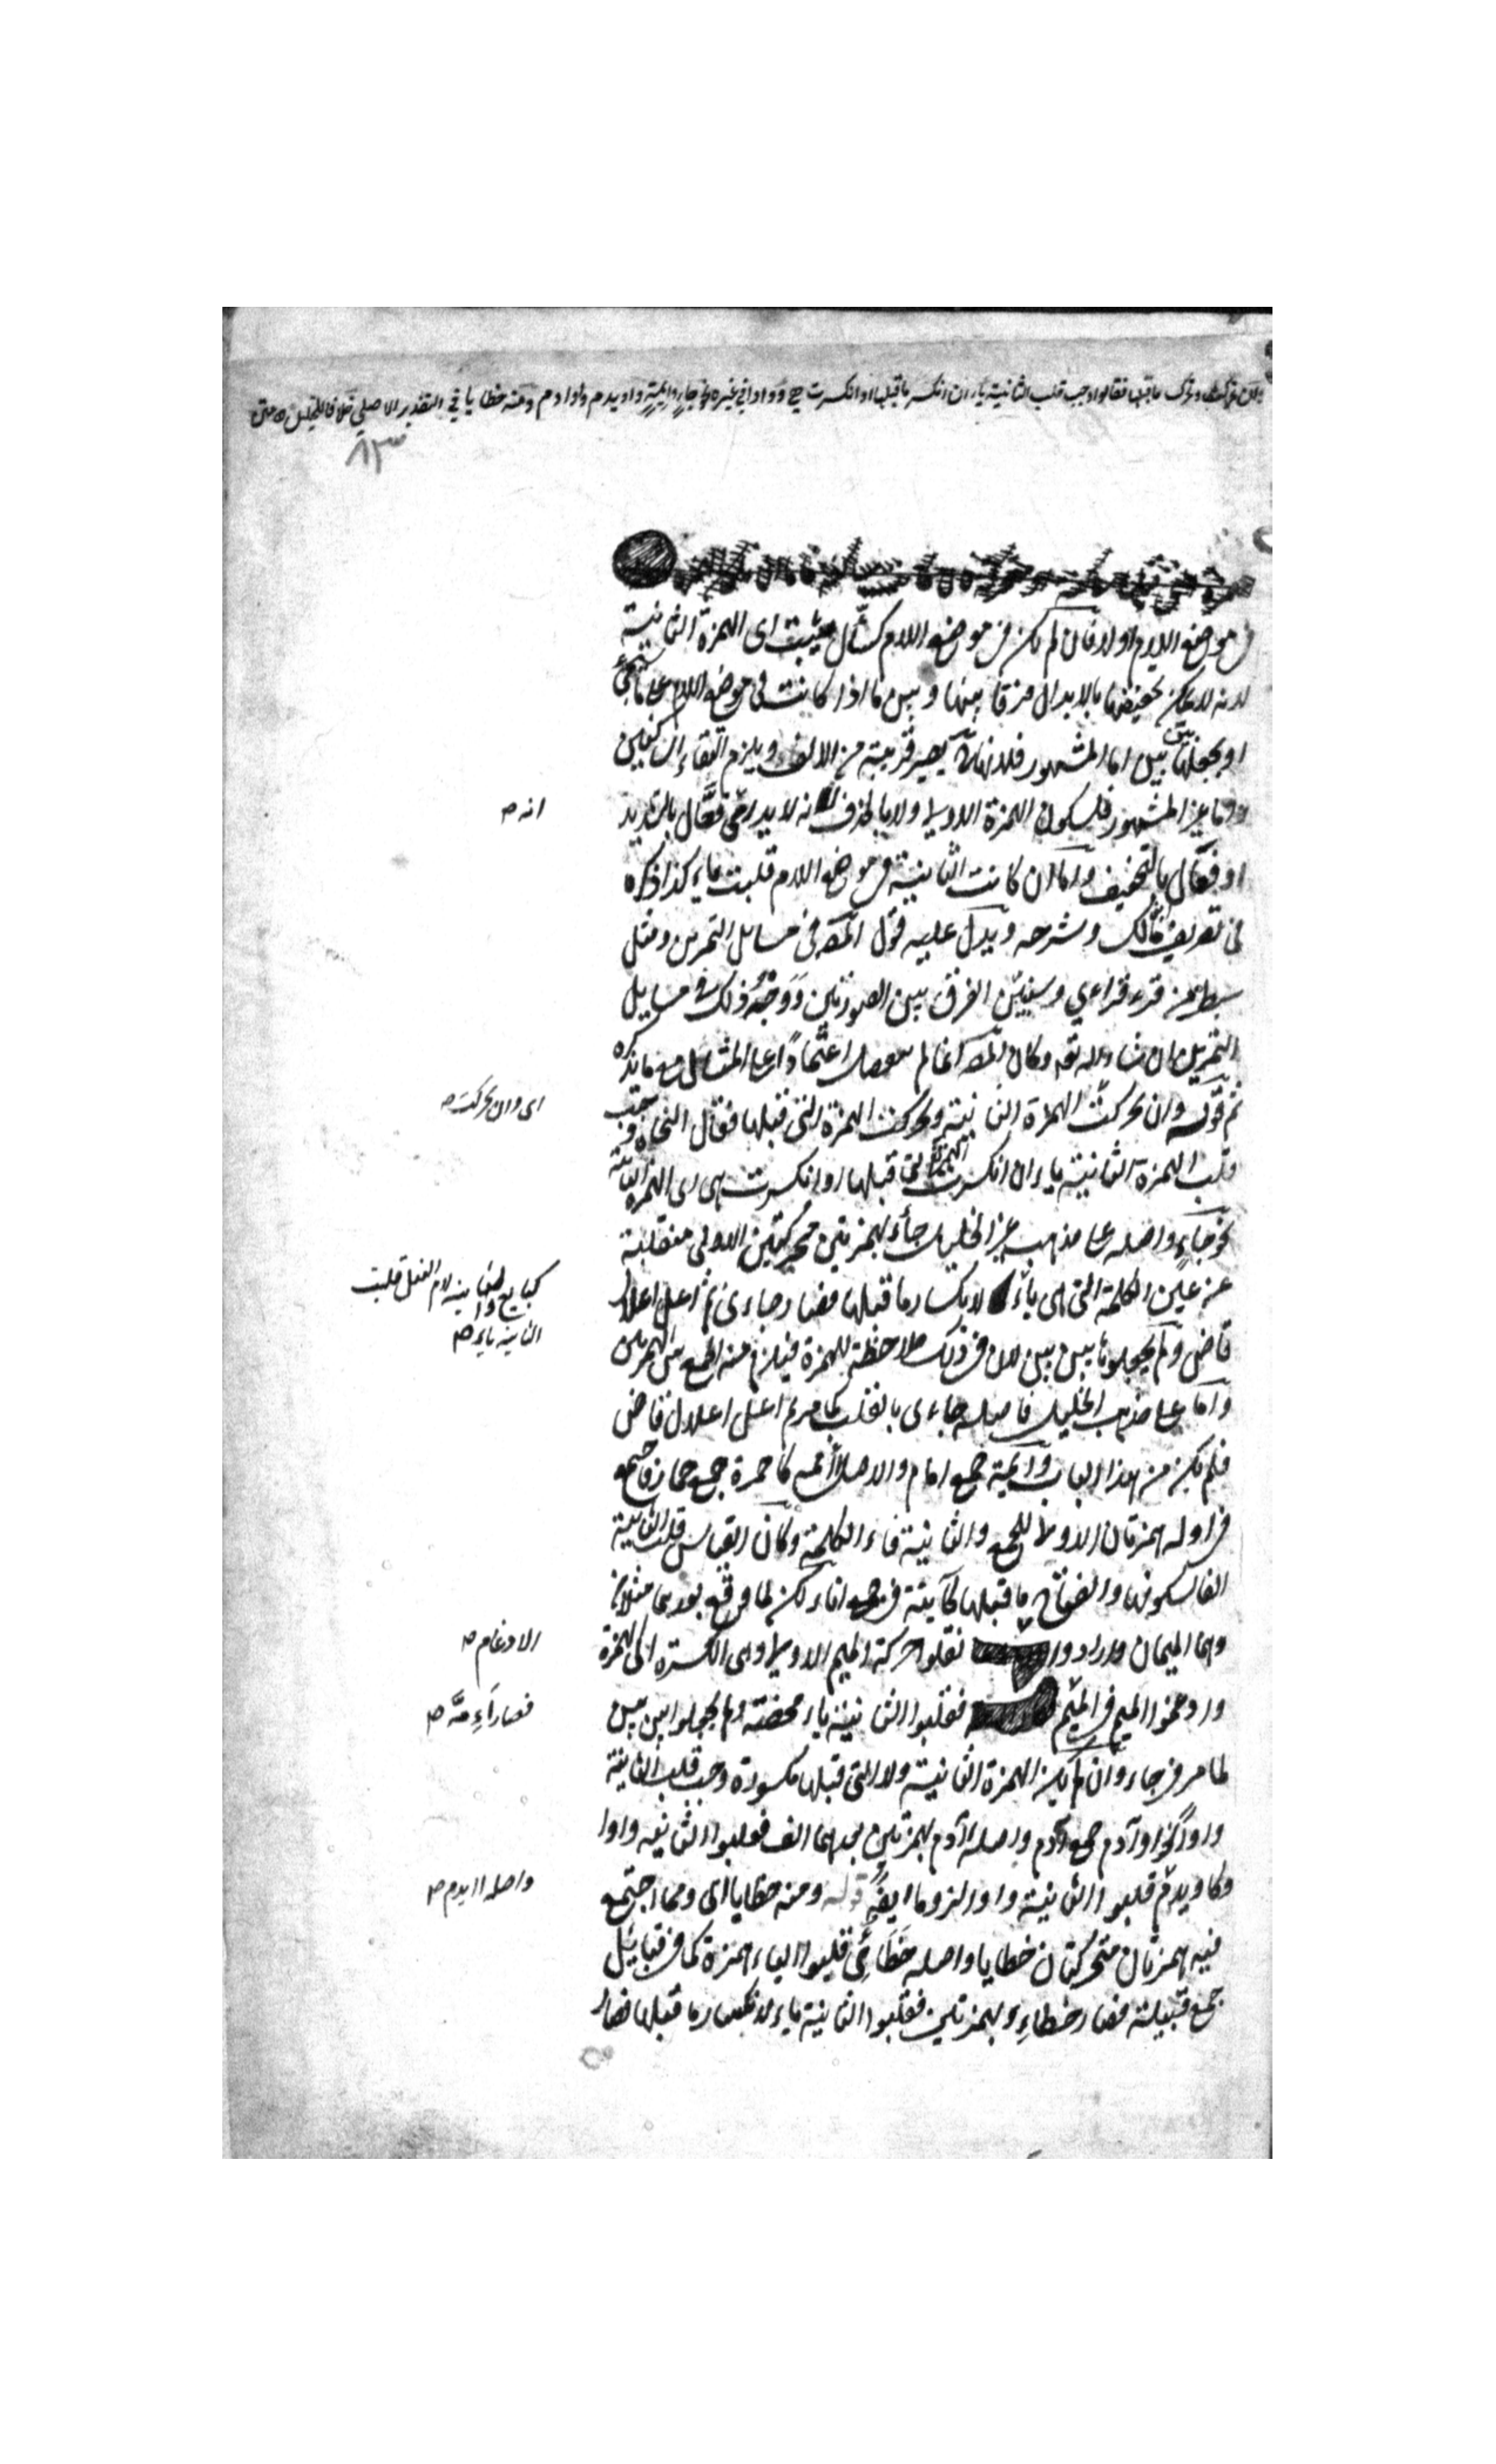 وان تحركت وتحرك ما قبلها فقالوا وجب قلب الثانية ياء ان انكسر ما قبلها او انكسرت هي وواوا في غيره نحو جاء وايمة واويدم واوادم ومنه خطايا في التقدير الاصلي خلافا للخليل متن
٨٣
في موضع اللام اولا فان لم يكن في موضع اللام كسئّال يثبت اى الهمزة الثانية
لانه لا يمكن تخفيفها بالابدال فرقا بينها وبين ما اذا كانت فى موضع اللام على ما سيجئ
او بجعلها بين بين اما المشهور فلانها تصير قريبة من الالف ويلزم التقاء الساكنين
واما غير المشهور فلسكون الهمزة الاولى ولا بالحذف لانه لا يدرى فعّال بالتشديد
انه ص
او فعال بالتخفيف واما ان كانت الثانية فى موضع اللام قلبت ياء كذا ذكره
فى تصريف مالك وشرحه ويدل عليه قول المص فى مسايل التمرين ومثل
سبطر من قرء قراءي وسنبين الفرق بين الصورتين ووجه ذلك فى مسايل
التمرين ان شاء الله تعه وكان المص انما لم يفصل اعتمادا على المثال مع ما يذكره
ثم قوله وان تحركت الهمزة الثانية وتحركت الهمزة التى قبلها فقال النحاة وجب
اى وان تحركت ص
قلب الهمزة الثانية ياء ان انكسرت الهمزة التى قبلها او انكسرت هى اى الهمزة الثانية
نحو جاء واصله على مذهب غير الخليل جاءء بهمزتين متحركتين الاولى منقلبة
عن عين الكلمة التى هى ياء لانكسار ما قبلها فصار جاءى ثم اعل اعلال
كبايع والثانية لام الفعل قلبت
الثانية ياء ص
قاض ولم يجعلوها بين بين لان فى ذلك ملاحظة للهمزة فيلزم منه الجمع بين الهمزتين
واما على مذهب الخليل فاصله جاءى بالقلب كما مر ثم اعل اعلال قاض
فلم يكن من هذا الباب وايمة جمع امام والاصل أءممة كاحمرة جمع حمار فاجتمع
فى اوله همزتان الاولى للجمع والثانية فاء الكلمة وكان القياس قلب الثانية
الفا لسكونها وانفتاح ما قبلها كآنية فى جمع اناء لكن لما وقع بعدها مثلان
وهما الميمان وارادوا نقلوا حركة الميم الاولى وهى الكسرة الى الهمزة
الادغام ص
وادغموا الميم فى الميم فقلبوا الثانية ياء محضة ولم يجعلوا بين بين
فصار أءِمّة ص
لما مر فى جاء وان لم يكن الهمزة الثانية ولا التى قبلها مكسورة وجب قلب الثانية
واوا نحو اوادم جمع آدم واصله أءادم بهمزتين بعدهما الف فقلبوا الثانية واوا
وكاويدم قلبوا الثانية واوا لزوما ايضا قوله ومنه خطايا اى ومما اجتمع
واصله اايدم ص
فيه همزتان متحركتان خطايا واصله خطائى قلبوا الياء همزة كما فى قبائل
جمع قبيلة فصار خطاءء بهمزتين فقلبوا الثانية ياء لانكسار ما قبلها فصار